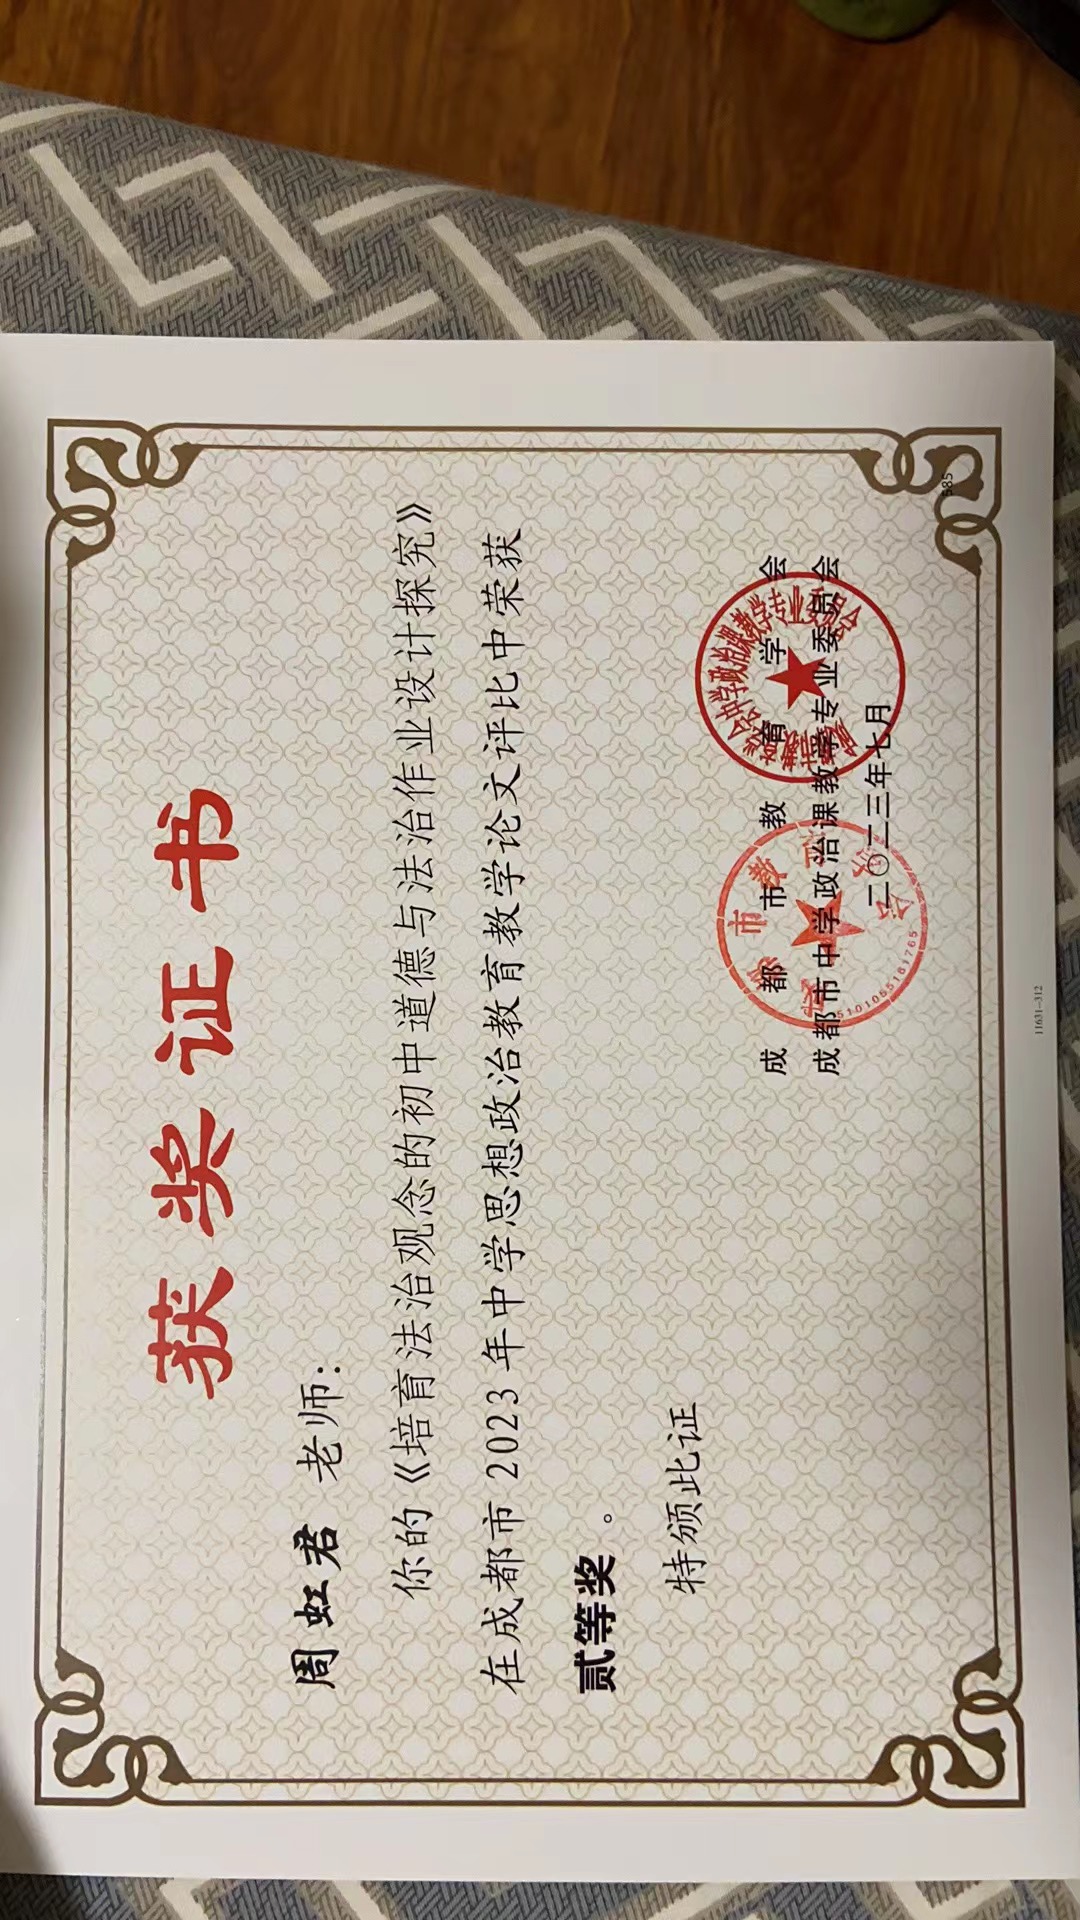 获奖证书
周虹君 老师：
你的《培育法治观念的初中道德与法治作业设计探究》
在成都市 2023 年中学思想政治教育教学论文评比中荣获
贰等奖。
特颁此证
成都市教育学会
成都市中学政治课教学专业委员会
二〇二三年七月
5101055181765
585
11631-312